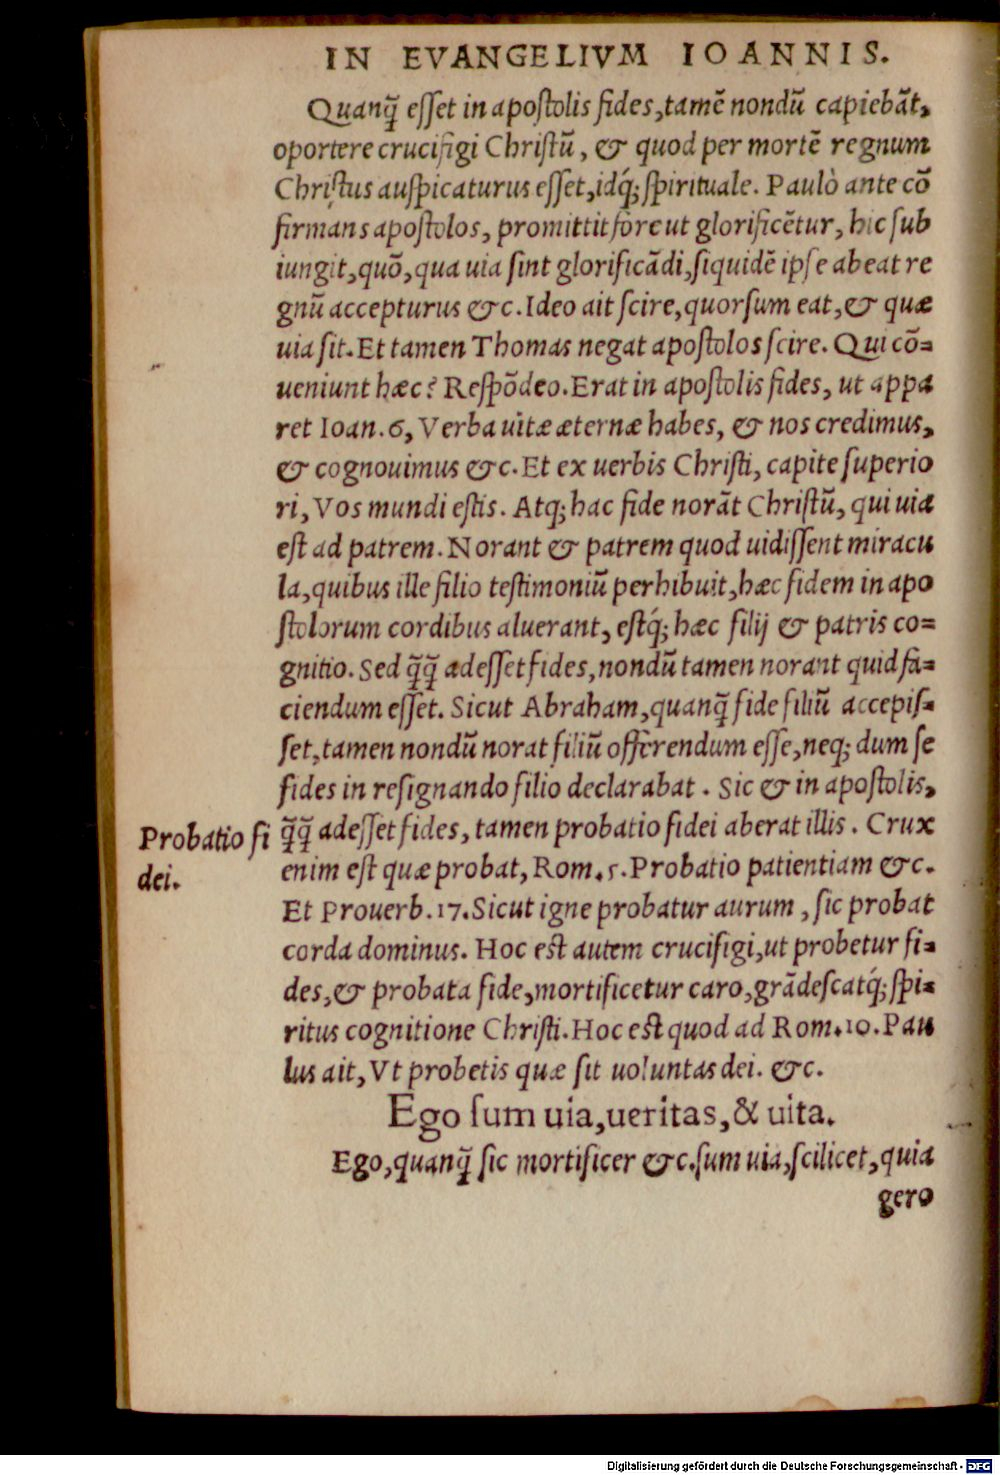 IN EVANGELIVM IOANNIS.
Quanq̃ esset in apostolis fides, tamẽ nondũ capiebãt,
oportere crucifigi Christũ, & quod per mortẽ regnum
Christus auspicaturus esset, idq́; spirituale. Paulò ante cõ
firmans apostolos, promittit fore ut glorificẽtur, hic sub
iungit, quõ, qua uia sint glorificãdi, siquidẽ ipse abeat re
gnũ accepturus &c. Ideo ait scire, quorsum eat, & quæ
uia sit. Et tamen Thomas negat apostolos scire. Qui cõ=
ueniunt hæc? Respõdeo. Erat in apostolis fides, ut appa
ret Ioan. 6, Verba uitæ æternæ habes, & nos credimus,
& cognouimus &c. Et ex uerbis Christi, capite superio
ri, Vos mundi estis. Atq; hac fide norãt Christũ, qui uia
est ad patrem. Norant & patrem quod uidissent miracu
la, quibus ille filio testimoniũ perhibuit, hæc fidem in apo
stolorum cordibus aluerant, estq́; hæc filij & patris co=
gnitio. Sed q̃q̃ adesset fides, nondũ tamen norant quid fa=
ciendum esset. Sicut Abraham, quanq̃ fide filiũ accepis=
set, tamen nondũ norat filiũ offerendum esse, neq; dum se
fides in resignando filio declarabat. Sic & in apostolis,
q̃q̃ adesset fides, tamen probatio fidei aberat illis. Crux
enim est quæ probat, Rom. 5. Probatio patientiam &c.
Et Prouerb. 17. Sicut igne probatur aurum, sic probat
corda dominus. Hoc est autem crucifigi, ut probetur fi=
des, & probata fide, mortificetur caro, grãdescatq́; spi=
ritus cognitione Christi. Hoc est quod ad Rom. 10. Pau
lus ait, Vt probetis quæ sit uoluntas dei. &c.
Probatio fi
dei.
Ego sum uia, ueritas, & uita.
Ego, quanq̃ sic mortificer &c. sum uia, scilicet, quia
gero
Digitalisierung gefördert durch die Deutsche Forschungsgemeinschaft - DFG